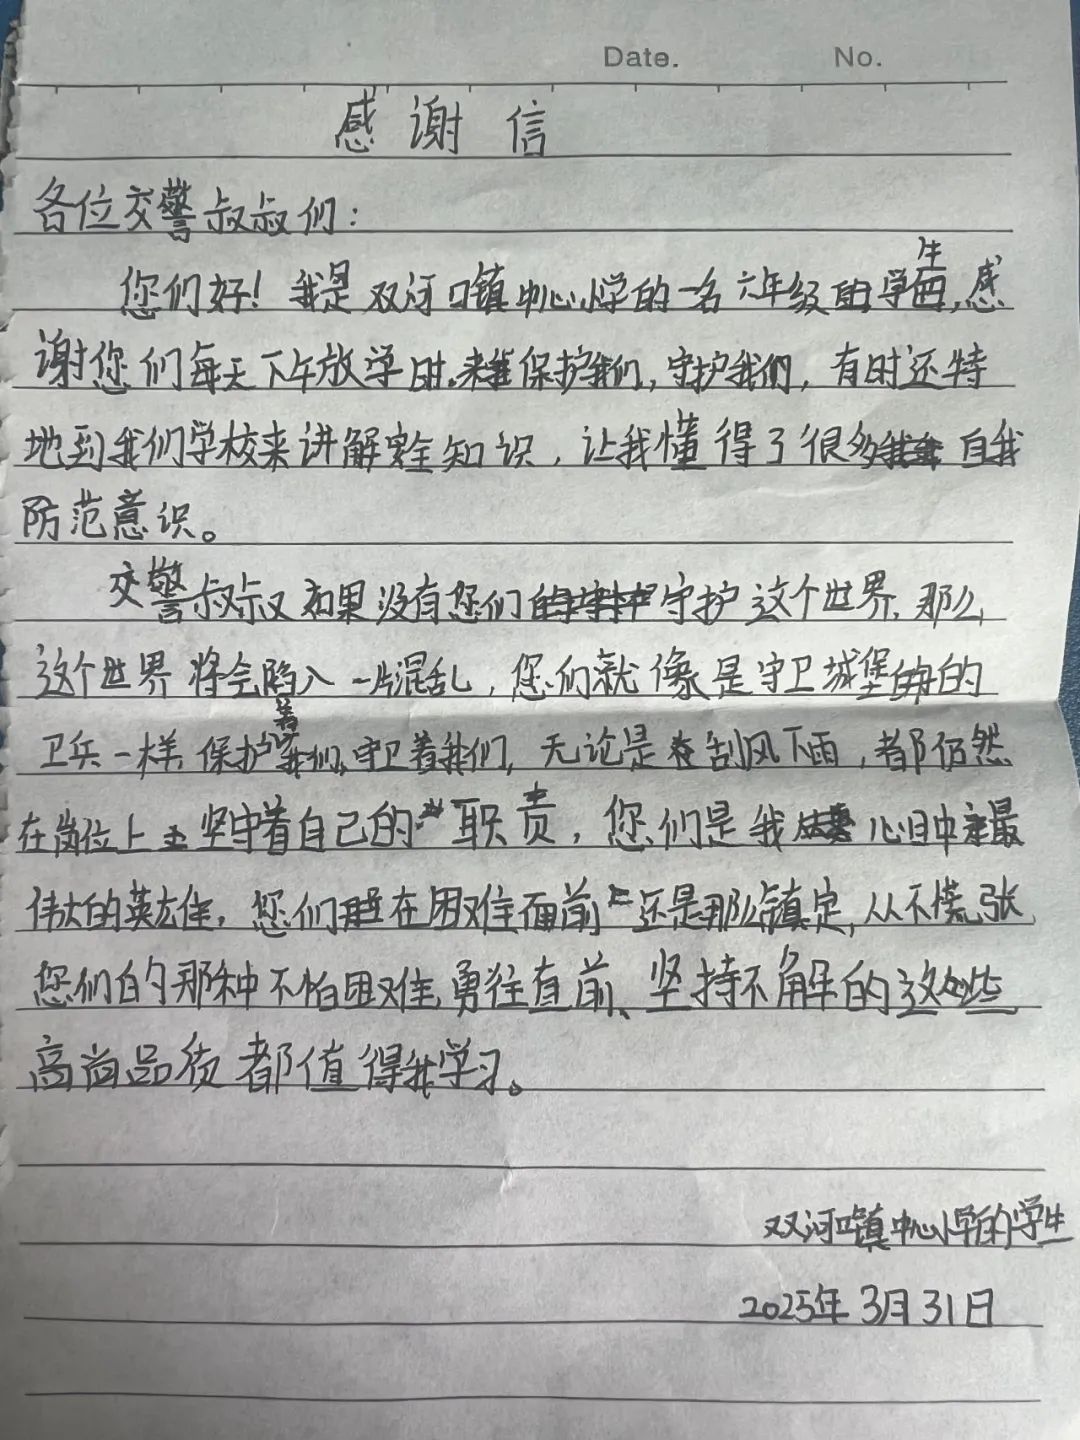 Date. No.
感谢信
各位交警叔叔们：
您们好！我是双河口镇中心小学的一名六年级的学生，感
谢您们每天下午放学时，来保护我们，守护我们，有时还特
地到我们学校来讲解安全知识，让我懂得了很多自我
防范意识。
交警叔叔如果没有您们守护这个世界，那么
这个世界将会陷入一片混乱，您们就像是守卫城堡的
卫兵一样，保护着我们，守卫着我们，无论是刮风下雨，都仍然
在岗位上坚守着自己的职责，您们是我心目中最
伟大的英雄，您们在困难面前还是那么镇定，从不慌张，
您们的那种不怕困难、勇往直前、坚持不解的这些
高尚品质都值得我学习。
双河口镇中心小学的学生
2025年3月31日